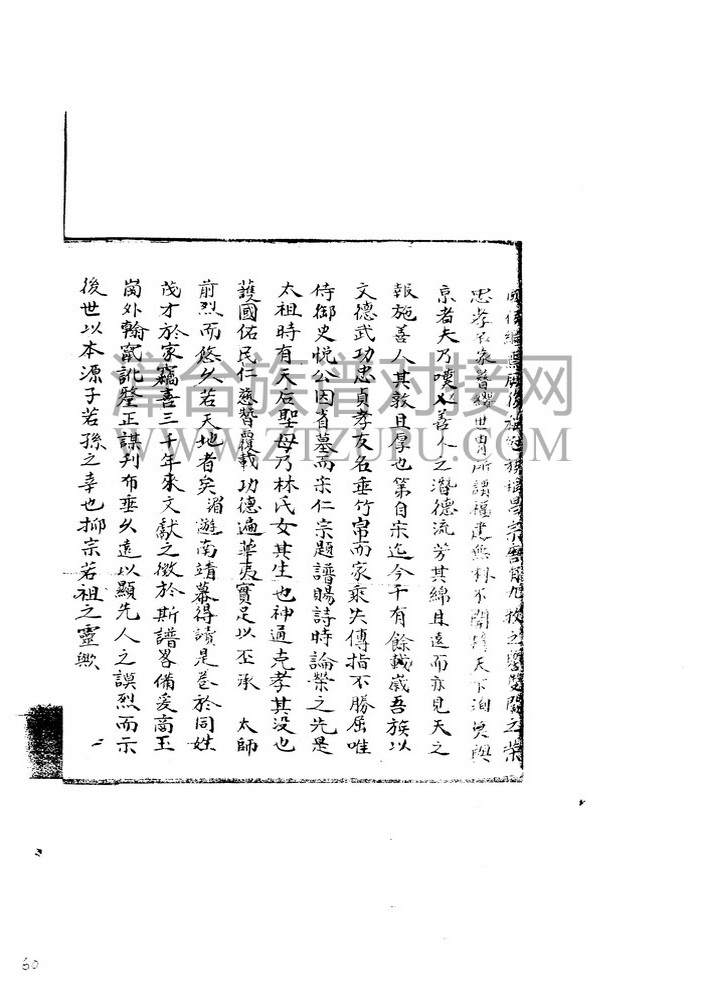 忠孝 家簪纓世胄所謂 無林不開 天下洵
京者夫乃嘆以善人之潛德流芳其綿且遠而亦見天之
報施善人其敦且厚也第自宋迄今千有餘載歲吾族以
文德武功忠貞孝友名垂竹帛而家乘失傳指不勝屈唯
侍御史悅公因省墓而宋仁宗題譜賜詩時論榮之先是
太祖時有天后聖母乃林氏女其生也神通克孝其没也
護國佑民仁慈誓覆載功德遍華夷實足以丕承 太師
前烈而悠久若天地者矣湄遊南靖幕得讀是卷於同姓
茂才於家竊喜三千年來文獻之徵於斯譜畧備爰商玉
崗外翰 訛 正謀刋布垂久遠以顯先人之謨烈而示
後世以本源子若孫之幸也抑宗若祖之靈歟
漳台族谱对接网
WWW.ZIZUPU.COM
60